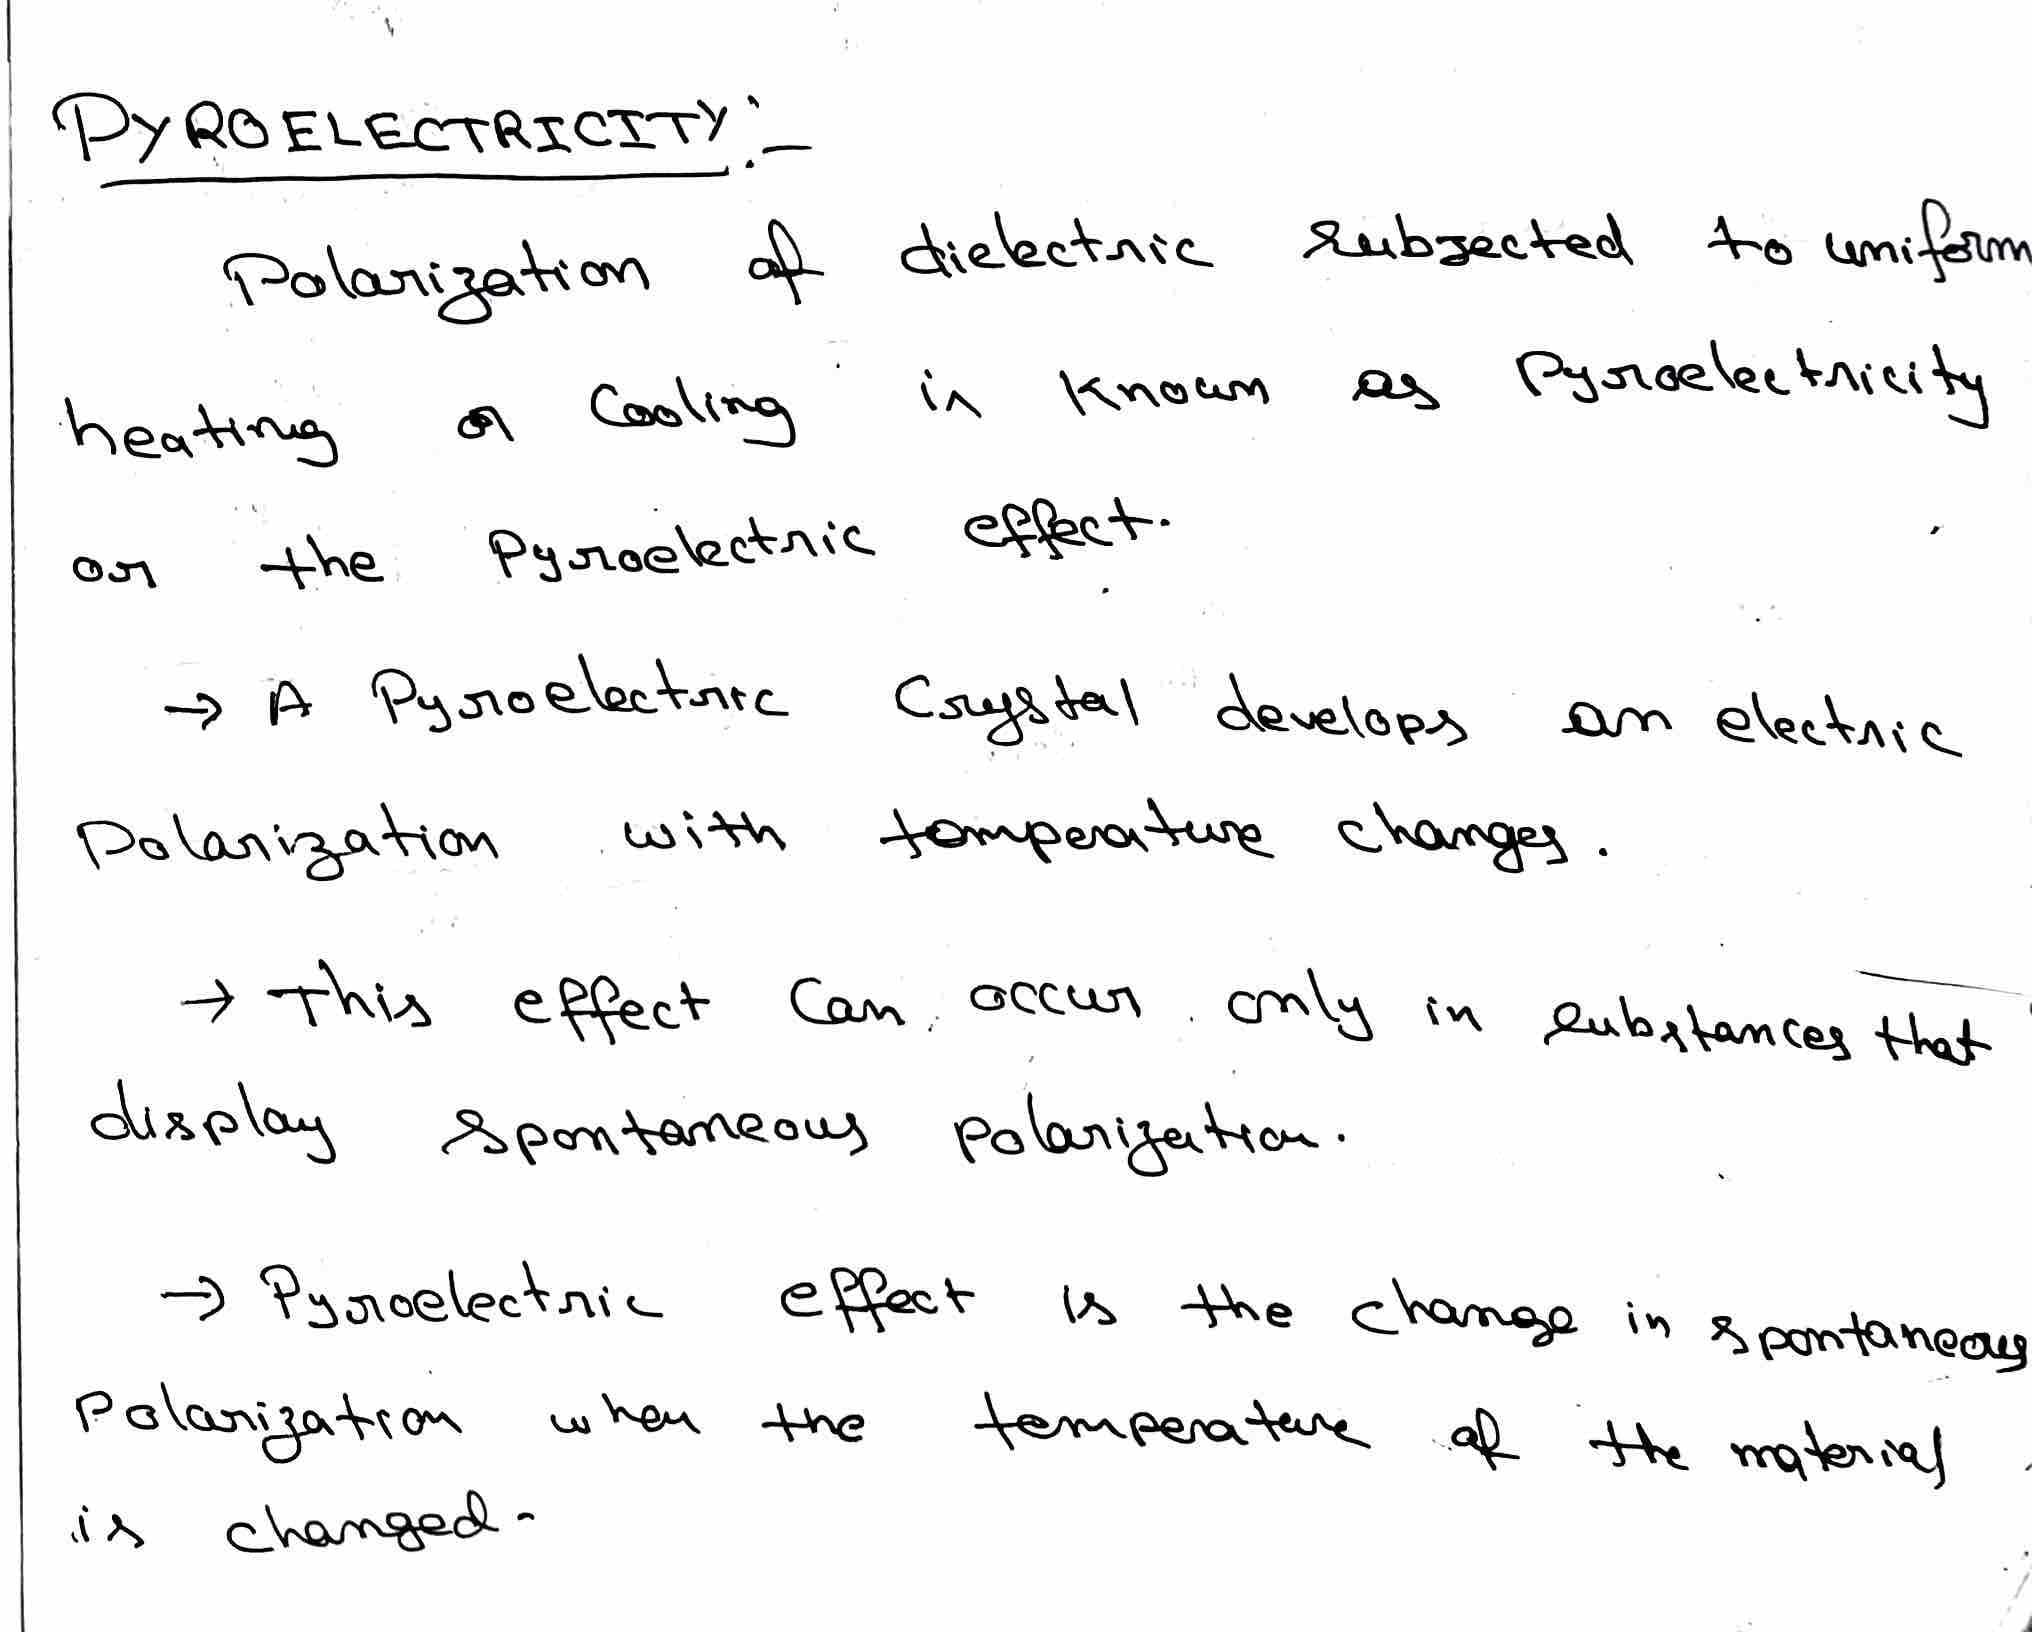 PYROELECTRICITY:-
Polarization of dielectric subjected to uniform
heating or Cooling is known as Pyroelectricity
or the Pyroelectric effect.
→ A Pyroelectric Crystal develops an electric
Polarization with temperature changes.
→ This effect Can occur only in substances that
display spontaneous polarization.
→ Pyroelectric effect is the change in spontaneous
Polarization when the temperature of the material
is changed.